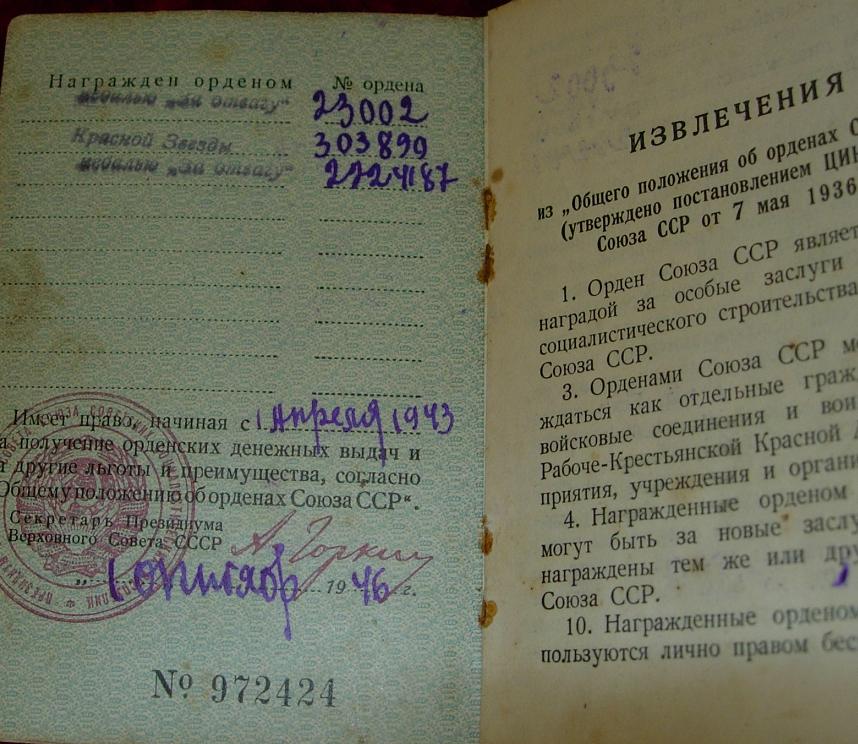 Награжден орденом № ордена
медалью „За отвагу“ 23002
Красной Звезды 303899
медалью „За отвагу“ 2724187
Имеет право, начиная с 1 Апреля 1943
на получение орденских денежных выдач и
другие льготы и преимущества, согласно
Общему положению об орденах Союза ССР“.
Секретарь Президиума
Верховного Совета СССР А. Горкин
„ 1 октября 1946 г.
№ 972424
ИЗВЛЕЧЕНИЯ
из „Общего положения об орденах С
(утверждено постановлением ЦИК
Союза ССР от 7 мая 1936
1. Орден Союза ССР являет
наградой за особые заслуги
социалистического строительства
Союза ССР.
3. Орденами Союза ССР мо
ждаться как отдельные граж
войсковые соединения и вои
Рабоче-Крестьянской Красной А
приятия, учреждения и органи
4. Награжденные орденом
могут быть за новые заслу
награждены тем же или дру
Союза ССР.
10. Награжденные орденом
пользуются лично правом бес